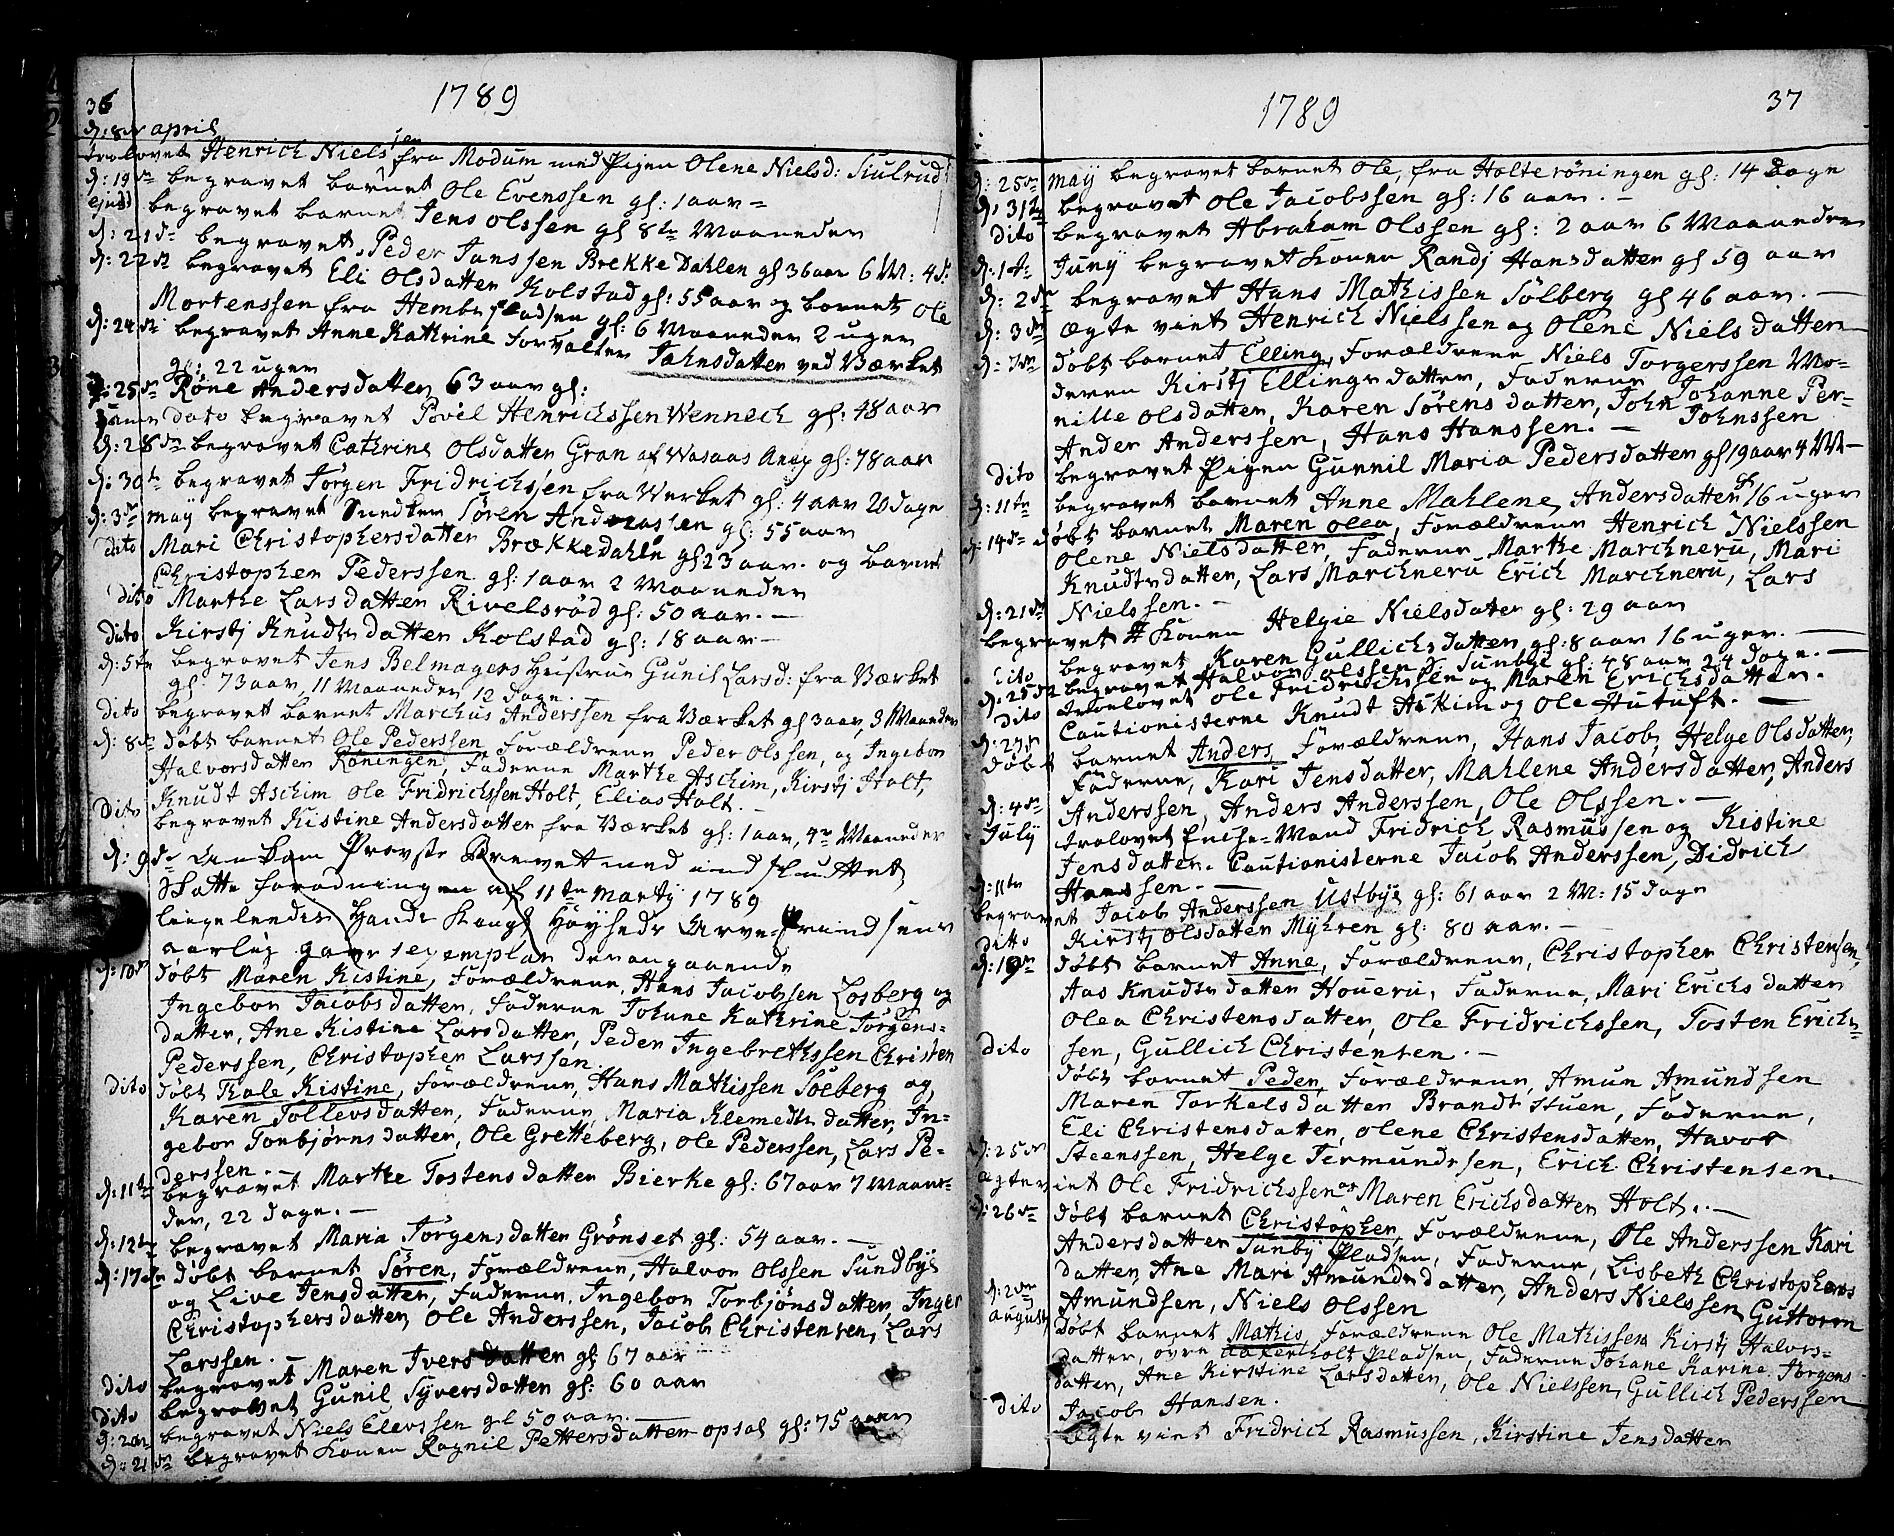 36
1789
d: 8de april
trolovet Henrich Nielssen fra Modum med Pigen Olene Nielsd: Siulrud
d: 19de begravet barnet Ole Evenssen gl: 1 aar =
ejusd begravet barnet Jens Olssen gl 8te Maaneder
d: 21de begravet Peder Janssen Brekke Dahlen gl 36 aar 6 M: 4 d:
d: 22de begravet Eli Olsdatter Kolstad gl: 55 aar og barnet Ole
Mortenssen fra gl: 6 Maaneder 2 uger
d: 24de begravet Anne Kathrine Forvalter Jahnsdatter ved Værket
gl: 22 uger
d: 25de Røne Andersdatter 63 aar gl:
samme dato begravet Povel Henrichssen Wennech gl: 48 aar
d: 28de begravet Catrine Olsdatter Gran af Wasaas gl: 78 aar
d: 30te begravet Jørgen Fridrichsen fra Werket gl: 4 aar 20 dage
d: 3de may begravet Snedker Søren Andreassen gl: 55 aar
dito Mari Christophersdatter Brækkedahln gl 23 aar. og barnet
Christopher Pederssen gl: 1 aar 2 Maaneder
dito Marthe Larsdatter Rivelsrød gl: 50 aar. —
dito Kirstj Knudtsdatter Kolstad gl: 18 aar —
d: 5te begravet Jens Belmagers Hustrue Gunil Larsd: fra Værket
gl: 73 aar, 11 Maaneder 12 dage. —
dito begravet barnet Marchus Anderssen fra Værket gl 3 aar, 3 Maaneder
d: 8de døbt barnet Ole Pederssen Forældrene Peder Olssen, og Ingebor
Halvorsdatter Røningen, Faderne Marthe Aschim, Kirstj Holt,
Knudt Aschim Ole Fridrichssen Holt, Elias Holt. —
Dito begravet Kistine Andersdatter fra Værket gl: 1 aar, 4re Maaneder
d: 9de Ankom Provste Brevet med
Skatte forodningen af 11te Marty 1789
ligeledes Hands Kongl Høyheds Arve Prindsens
aarlig gave 1 exemplar derangaaende
d: 10de døbt Maren Kistine, Forældrene, Hans Jacobsen Losberg og
Ingebor Jacobsdatter, Faderne Johane Kathrine Jørgens=
datter, Ane Kistine Larsdatter, Peder Ingebrethssen Christen
Pederssen, Christopher Larssen.
dito døbt Kale Kistine, Forældrene, Hans Mathissen Soeberg og
Karen Tollevsdatter, Faderne, Maria Klemedtsdatter, In-
gebor Torbjørnsdatter, Ole Gretteberg, Ole Pederssen, Lars Pe-
derssen. —
d: 11te begravet Marthe Tostensdatter Bierke gl: 67 aar 7 Maane-
der, 22 dage. —
d: 12te begravet Maria Jørgensdatter Grønset gl: 54 aar. —
d: 17de døbt barnet Søren, Forældrene, Halvor Olssen Sundbye
og Live Jensdatter, Faderne, Ingebor Torbjønsdatter, Inger
Christophersdatter, Ole Anderssen, Jacob Christensen, Lars
Larssen. —
dito begravet Maren Ivers datter gl 67 aar
dito begravet Gunil Syversdatter gl: 60 aar
d: 20de begravet Niels Elevssen gl 50 aar. —
d: 21de begravet Konen Ragnil Pettersdatter opsal gl: 75 aar
1789
37
d: 25de may begravet barnet Ole, fra Holterøningen gl: 14 dage
d: 31te begravet Ole Jacobssen gl: 16 aar. —
dito begravet Abraham Olssen gl: 2 aar 6 Maaneder
d: 1te Juny begravet Konen Randj Hansdatter gl 59 aar
d: 2de begravet Hans Mathissen Sølberg gl 46 aar. —
d: 3de ægte viet Henrich Nielssen og Olene Nielsdatter
d: 7de døbt barnet Elling, Forældrene Niels Torgerssen Mo-
deren Kirstj Ellingsdatter, Faderne Johanne Per-
nille Olsdatter, Karen Sørensdatter, John Johnssen
Ander Anderssen, Hans Hanssen. —
dito begravet Pigen Gunnil Maria Pedersdatter gl 19 aar 4 M —
d: 11te begravet barnet Anne Mahlene Andersdatter gl 16 uger
d: 14de døbt barnet Maren Olea, Forældrene Henrich Nielssen
Olene Nielsdatter, Faderne Marthe Marchneru, Mari
Knudtsdatter, Lars Marchneru Erich Marchneru, Lars
Nielssen. —
d: 21de begravet Konen Helgie Nielsdater gl: 29 aar
dito begravet Karen Gullichsdatter gl: 8 aar 16 uger. —
d: 25de begravet Halvor Olssen S. Sunbye gl: 48 aar 24 dage. —
dito troelovet Ole Fridrichssen og Maren Erichsdatter.
Cautionisterne Knudt Askim og Ole Hutuft. —
d: 27de døbt barnet Anders, Forældrene, Hans Jacob, Helge Olsdatter,
Faderne, Kari Jensdatter, Mahlene Andersdatter, Anders
Anderssen, Anders Anderssen, Ole Olssen. —
d: 4de July trolovet Enche-Mand Fridrich Rasmussen og Kistine
Jensdatter. Cautionisterne Jacob Anderssen, Didrich
Hanssen. —
d: 11te begravet Jacob Anderssen Ustbye gl: 61 aar 2 M: 15 dage
ditto Kirstj Olsdatter Myhren gl: 80 aar. —
d: 19de døbt barnet Anne, Forældrene, Christopher Christensen,
Aas Knudtsdatter Houeru, Faderne, Mari Erichsdatter
Olea Christensdatter, Ole Fridrichssen, Tosten Erich-
sen, Gullich Christensen. —
dito døbt barnet Peder, Forældrene, Amun Amundsen
Maren Torkelsdatter Brandtstuen, Faderne,
Eli Christensdatter, Olene Christensdatter, Havor
Steenssen, Helge Termundssen, Erich Christensen.
d: 25de ægteviet Ole Fridrichssen og Maren Erichsdatter Holt. —
d: 26de døbt barnet Christopher, Forældrene, Ole Anderssen Kari
Andersdatter Sunby Pladsen, Faderne, Lisbeth Christophers
datter, Ane Mari Amundsdatter, Anders Nielssen, Guttorm
Amundsen, Niels Olssen
d: 2den augusti døbt barnet Mathis, Forældrene Ole Mathissen Kirstj Halvors=
datter, øvre Aakerholt Pladsen, Faderne Johane Karine Jørgens
datter, Ane Kirstine Larsdatter, Ole Nielssen, Gullich Pederssen
Jacob Hansen.
dito Ægte viet Fridrich Rasmussen, Kirstine Jensdatter